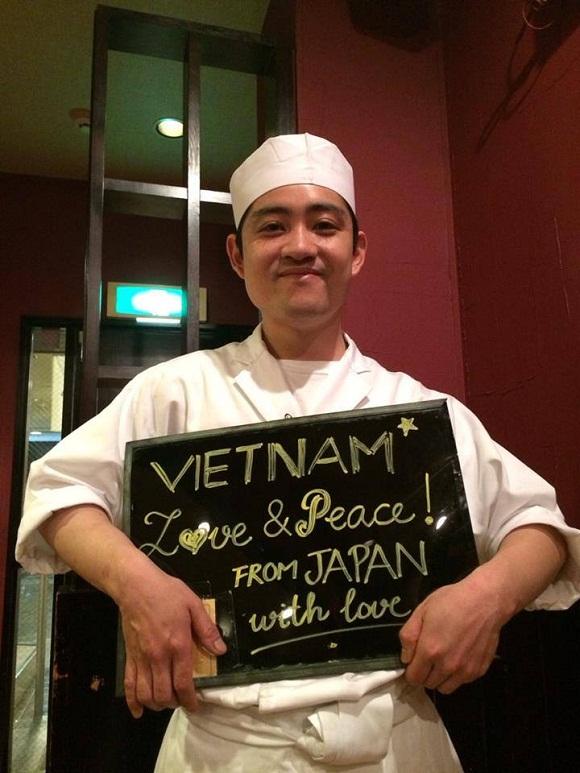 VIETNAM
Love & Peace!
FROM JAPAN
with love